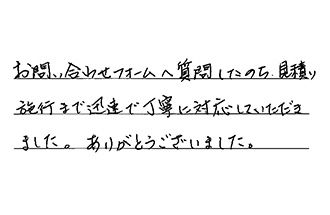 お問い合わせフォームへ質問したのち、見積り
施行まで迅速で丁寧に対応していただき
ました。ありがとうございました。